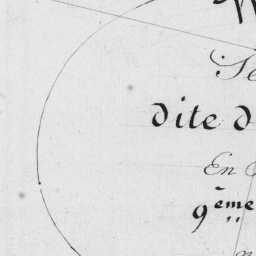 Se
dite d
En
9ème